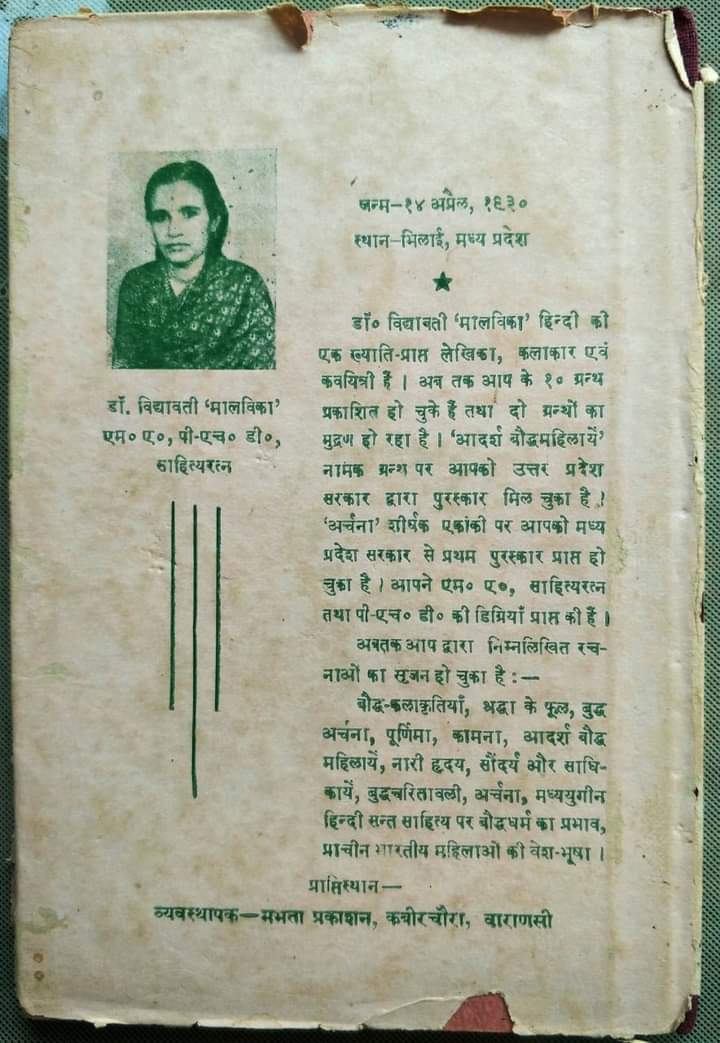 डॉ. विद्यावती ‘मालविका’
एम० ए०, पी-एच० डी०,
साहित्यरत्न
जन्म–१४ अप्रैल, १९३०
स्थान–भिलाई, मध्य प्रदेश
डॉ० विद्यावती ‘मालविका’ हिन्दी की
एक ख्याति-प्राप्त लेखिका, कलाकार एवं
कवयित्री हैं । अब तक आप के १० ग्रन्थ
प्रकाशित हो चुके हैं तथा दो ग्रन्थों का
मुद्रण हो रहा है । ‘आदर्श बौद्धमहिलायें’
नामक ग्रन्थ पर आपको उत्तर प्रदेश
सरकार द्वारा पुरस्कार मिल चुका है ।
‘अर्चना’ शीर्षक एकांकी पर आपको मध्य
प्रदेश सरकार से प्रथम पुरस्कार प्राप्त हो
चुका है । आपने एम० ए०, साहित्यरत्न
तथा पी-एच० डी० की डिग्रियाँ प्राप्त की हैं ।
अबतक आप द्वारा निम्नलिखित रच-
नाओं का सृजन हो चुका है :—
बौद्ध-कलाकृतियाँ, श्रद्धा के फूल, बुद्ध
अर्चना, पूर्णिमा, कामना, आदर्श बौद्ध
महिलायें, नारी हृदय, सौंदर्य और साधि-
कायें, बुद्धचरितावली, अर्चना, मध्ययुगीन
हिन्दी सन्त साहित्य पर बौद्धधर्म का प्रभाव,
प्राचीन भारतीय महिलाओं की वेश-भूषा ।
प्राप्तिस्थान—
व्यवस्थापक—ममता प्रकाशन, कबीरचौरा, वाराणसी